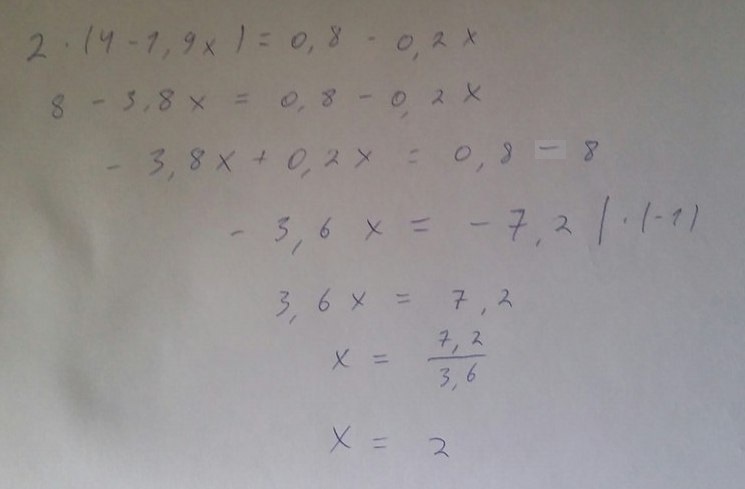 2 · (4 - 1,9x) = 0,8 - 0,2x
8 - 3,8x = 0,8 - 0,2x
- 3,8x + 0,2x = 0,8 - 8
- 3,6 x = - 7,2 | · (-1)
3,6 x = 7,2
x = 7,2/3,6
x = 2